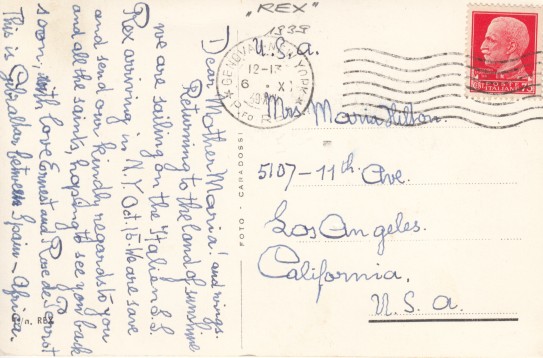 „REX"
1939
U.S.a.
GENOVA-LINEA N. YORK
12-13
6. X
Dear Mother Maria! and wings.
Returning to the land of sunshine
we are sailing on the Italien S.S.
Rex arriving in N.Y. Oct, 15. We are save
and send our kindly regards to you
and all the saints, hoping to see you back
soon, with love Ernest and Rose de
This is Gibraltar between Spain - African
Mrs Maria Hilton.
5107-11th Ave.
Los Angeles.
California,
U.S.a.
FOTO - CAPADOSSI
P/n. REX
POSTE
ITALIANE
75